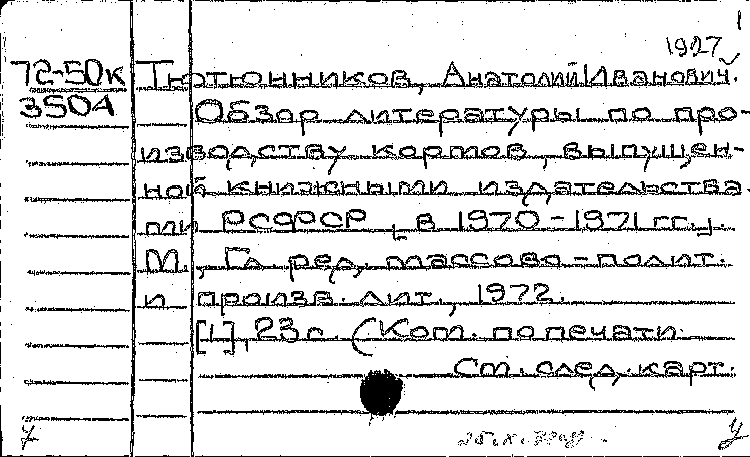 1
1927
72-50к Тютюнников, Анатолий Иванович.
350А Обзор литературы по про-
изводству кормов, выпущен-
ной книжными издательства-
ми РСФСР [в 1970-1971 гг.].
М., Гл. ред. массово-полит.
и произв. лит., 1972.
[1], 23 с. (Ком. по печати
См. след. карт.
у